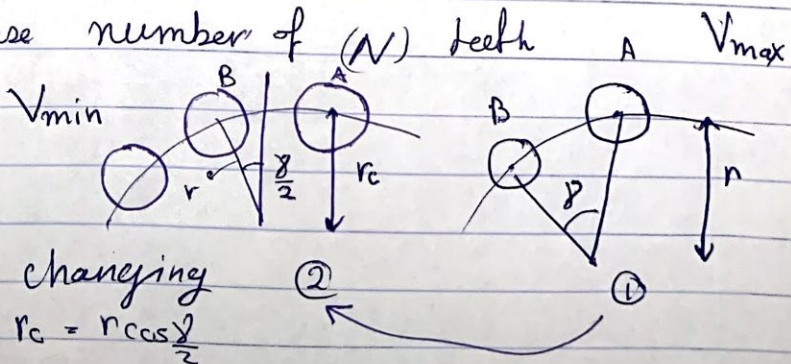 se number of (N) teeth
A
Vmax
B
A
Vmin
B
r
γ/2
rc
γ
r
changing
②
①
rc = r cos γ/2